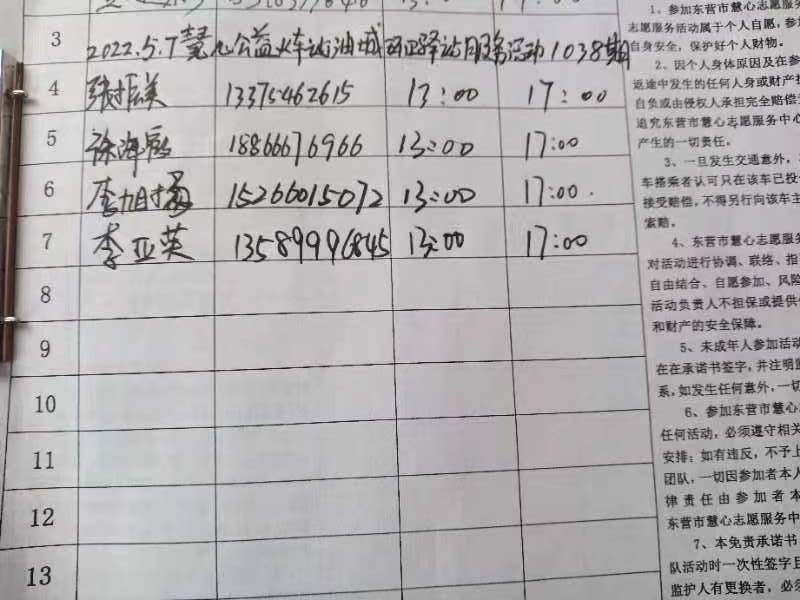 3
2022.5.7慧心公益火车站油城石正驿站服务活动1038期
4 张振美 13375462615 13:00 17:00
5 徐海 18866676966 13:00 17:00
6 李旭 15266015072 13:00 17:00.
7 李亚英 13589996845 13:00 17:00
8
9
10
11
12
13
1、参加东营市慧心志愿服务
志愿服务活动属于个人自愿,参
自身安全,保护好个人财物。
2、因个人身体原因及在参
返途中发生的任何人身或财产损
自负或由侵权人承担完全赔偿
追究东营市慧心志愿服务中心
产生的一切责任。
3、一旦发生交通意外,
车搭乘者认可只在该车已投
接受赔偿,不得另行向该车主
索赔。
4、东营市慧心志愿服务
对活动进行协调、联络、指
自由结合、自愿参加、风险
活动负责人不担保或提供
和财产的安全保障。
5、未成年人参加活动
在在承诺书签字,并注明
系,如发生任何意外,一切
6、参加东营市慧心
任何活动,必须遵守相关
安排;如有违反,不予上
团队,一切因参加者本人
律责任由参加者本
东营市慧心志愿服务中
7、本免责承诺书
队活动时一次性签字且
监护人有更换者,必须